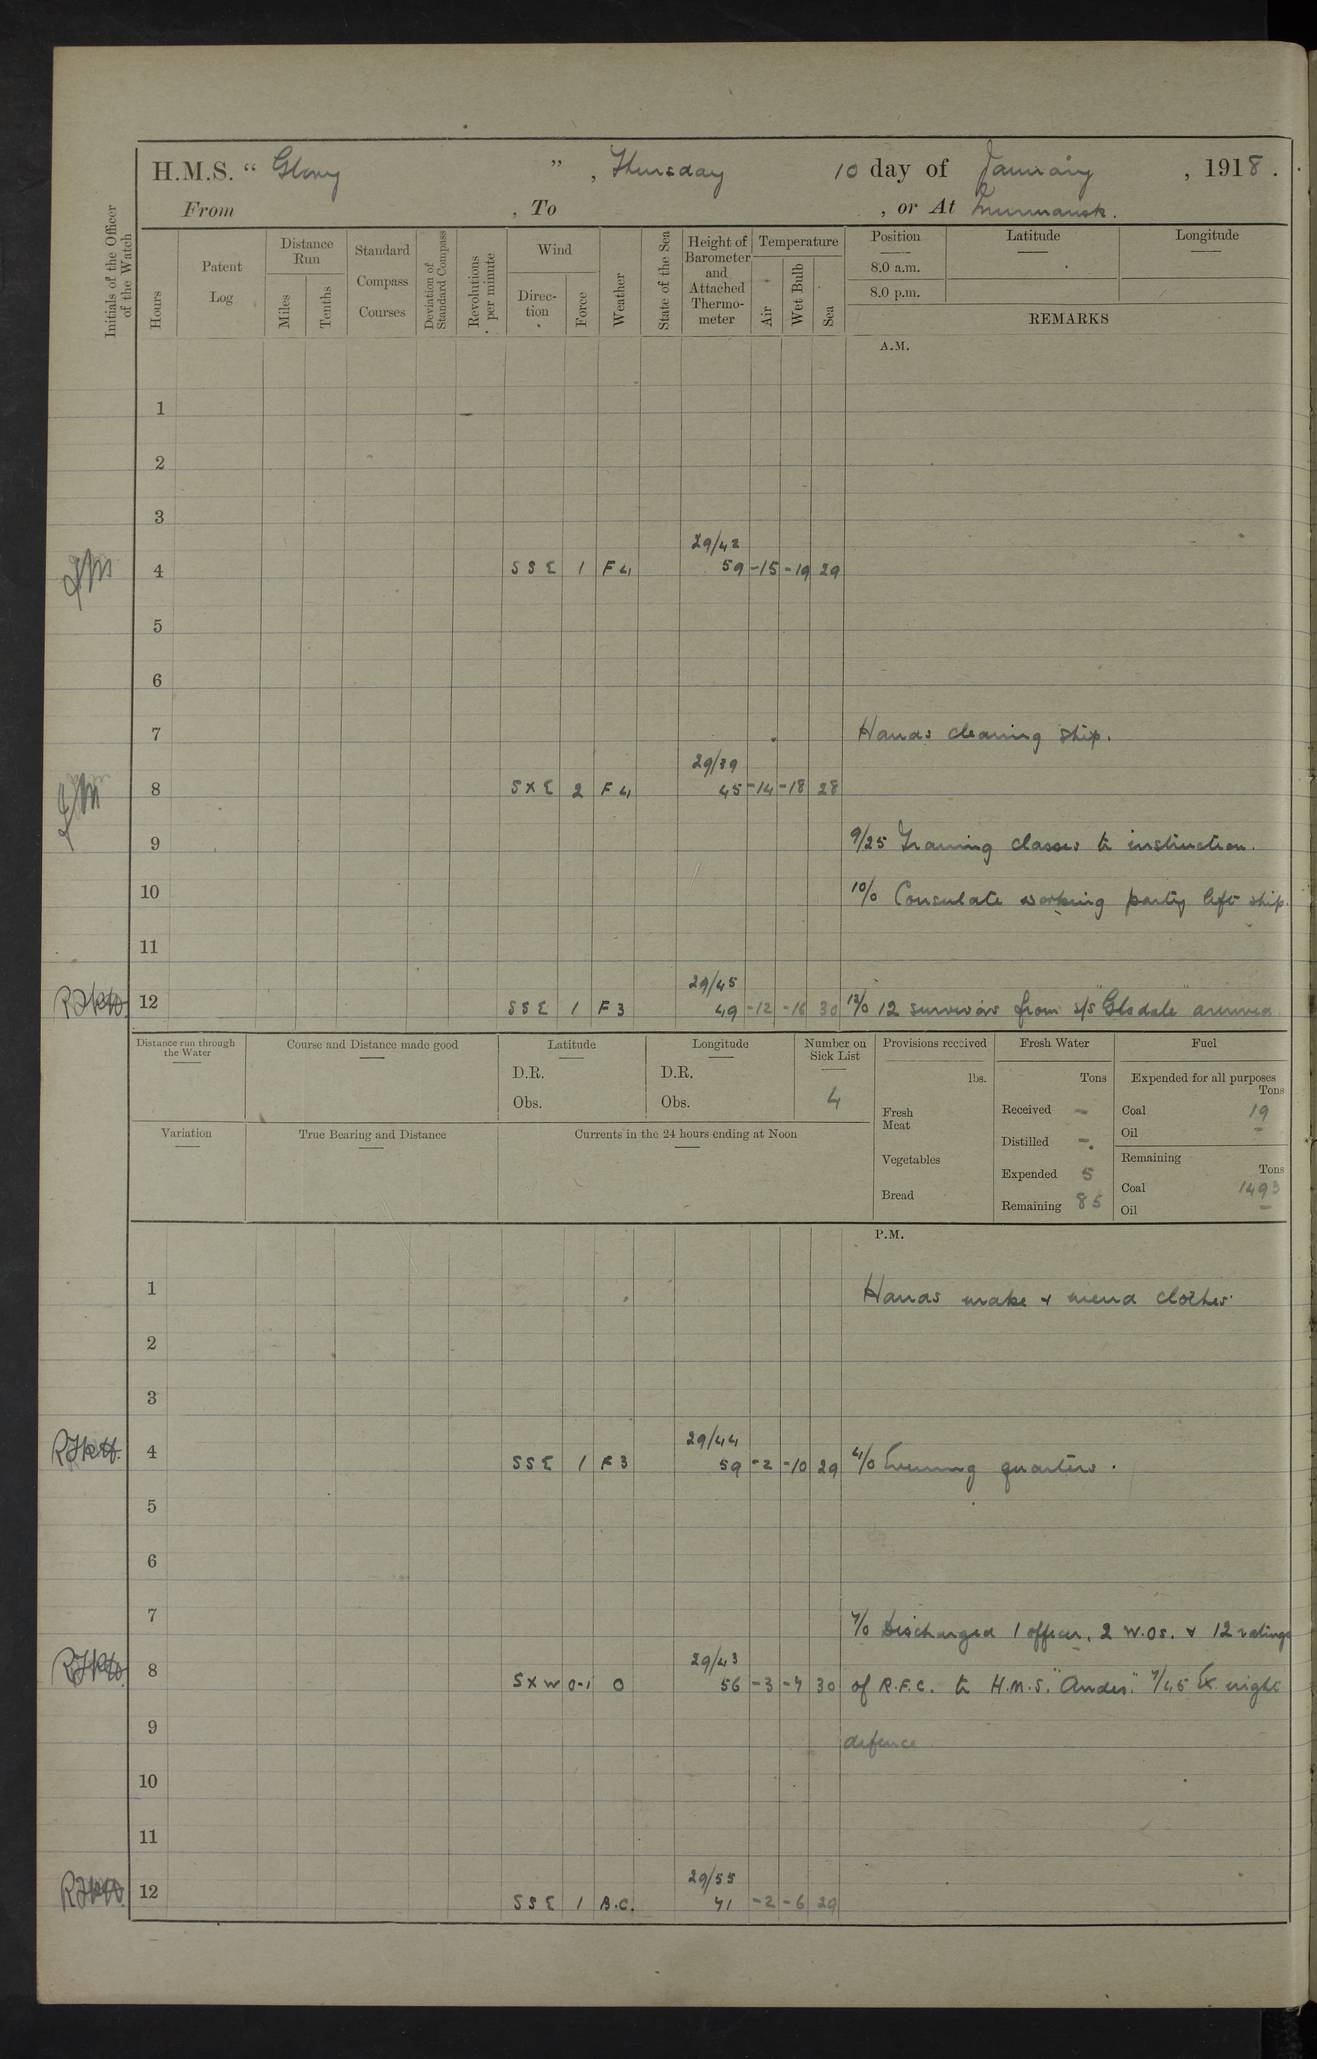 H.M.S. “ Glory ”, Thursday 10 day of January, 1918.
From , To , or At Murmansk.
Initials of the Officer of the Watch
Hours
Patent Log
Distance Run
Miles
Tenths
Standard Compass Courses
Deviation of Standard Compass
Revolutions per minute
Wind
Direction
Force
Weather
State of the Sea
Height of Barometer and Attached Thermometer
Temperature
Air
Wet Bulb
Sea
Position Latitude Longitude
8.0 a.m.
8.0 p.m.
REMARKS
A.M.
1
2
3
29/42
4 SSE 1 F4 59 -15 -19 29
5
6
7 Hands cleaning ship.
29/39
8 SXE 2 F4 45 -14 -18 28
9 9/25 Training classes to instruction.
10 10/0 Consulate working party left ship.
11
29/45
12 SSE 1 F3 49 -12 -16 30 12/0 12 survivors from s/s "Glsdale" arrived
Distance run through the Water
Course and Distance made good
Latitude
D.R.
Obs.
Longitude
D.R.
Obs.
Number on Sick List
4
Provisions received
lbs.
Fresh Meat
Vegetables
Bread
Fresh Water
Tons
Received -
Distilled -.
Expended 5
Remaining 85
Fuel
Expended for all purposes
Tons
Coal 19
Oil -
Remaining
Tons
Coal 1493
Oil -
Variation
True Bearing and Distance
Currents in the 24 hours ending at Noon
P.M.
1 Hands make & mend clothes.
2
3
29/44
4 SSE 1 F3 59 -2 -10 29 4/0 Evening quarters.
5
6
7 7/0 Discharged 1 officer, 2 W.Os. & 12 ratings
29/43
8 SXW 0-1 O 56 -3 -7 30 of R.F.C. to H.M.S. "Andes." 7/45 Ex night
9 defence
10
11
29/55
12 SSE 1 B.C. 41 -2 -6 29